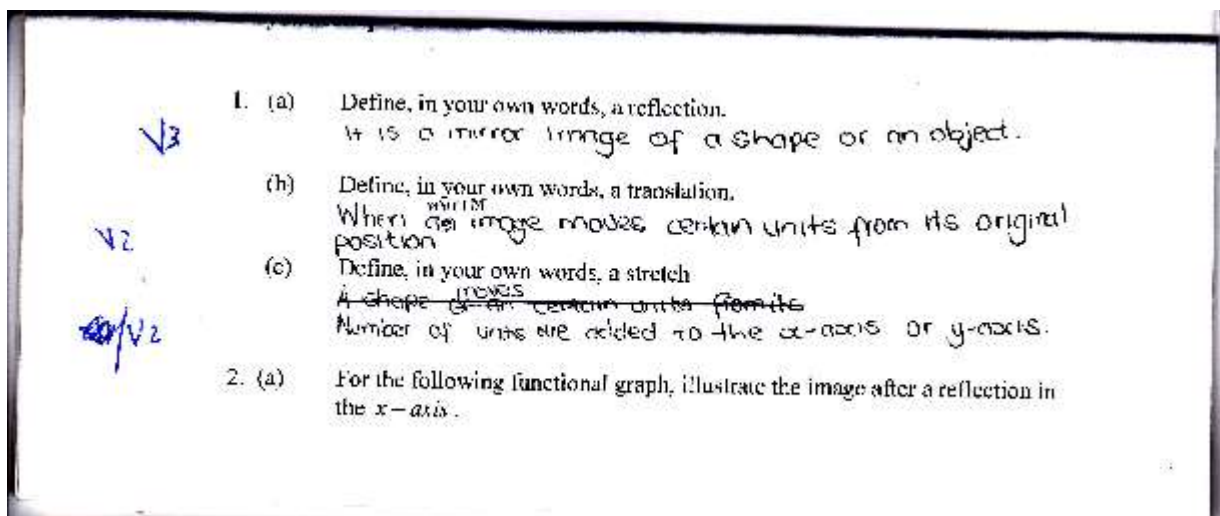 1. (a) Define, in your own words, a reflection.
V3
It is a mirror image of a shape or an object.
(b) Define, in your own words, a translation.
When an image moves certain units from its original
V2
position
(c) Define, in your own words, a stretch
A shape moves certain units from its
Number of units are added to the x-axis or y-axis.
V2
2. (a) For the following functional graph, illustrate the image after a reflection in
the x – axis.